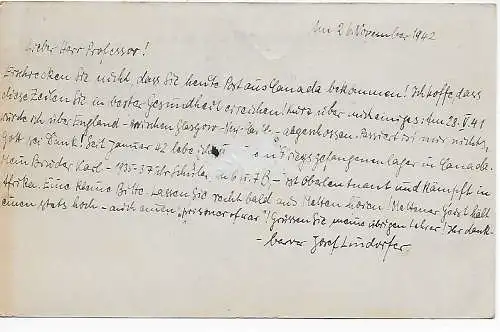 Am 2. November 1942
Lieber Herr Professor!
Erschrecken Sie nicht, dass Sie heute Post aus Canada bekommen! Ich hoffe, dass
diese Zeilen Sie in bester Gesundheit erreichen! Kurz über mich einiges: Am 28. V. 41
wurde ich über England - zwischen Glasgow - - abgeschossen. Passiert ist mir nichts,
Gott sei Dank! Seit Januar 42 lebe ich in Kriegsgefangenenlager in Canada.
Mein Bruder Karl - 1935-37 Ihr Schüler u. 7B - ist Oberleutnant und kämpft in
Afrika. Eine kleine Bitte: Lassen Sie recht bald aus Metten hören! Mettener Geist hält
einen stets hoch - auch einen "prisoner of war"! Grüssen Sie meine übrigen Lehrer! Ihr dank-
barer Josef Lindorfer.